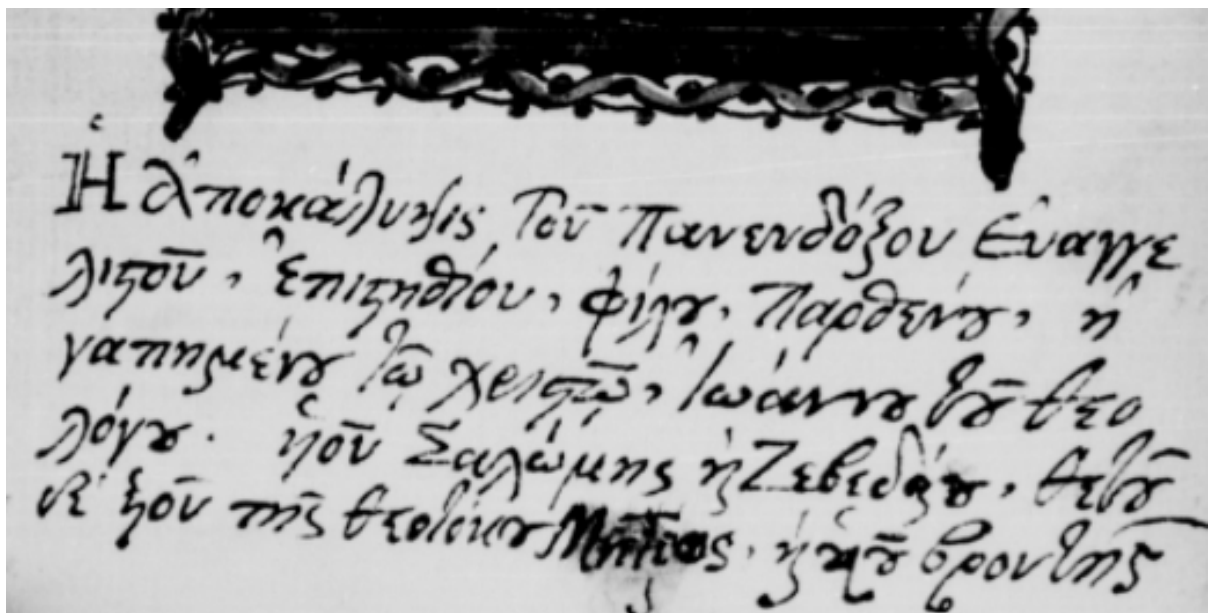 Ἡ Ἀποκάλυψις τοῦ Πανενδόξου Εὐαγγε
λιστοῦ, ἐπιστηθίου, φίλου, Παρθένου, ἠ
γαπημένου τῷ χριστῷ, Ἰωάννου τοῦ θεο
λόγου. υἱοῦ Σαλώμης καὶ Ζεβεδαίου, θετοῦ
δὲ υἱοῦ τῆς θεοτόκου, καὶ υἱοῦ βροντῆς